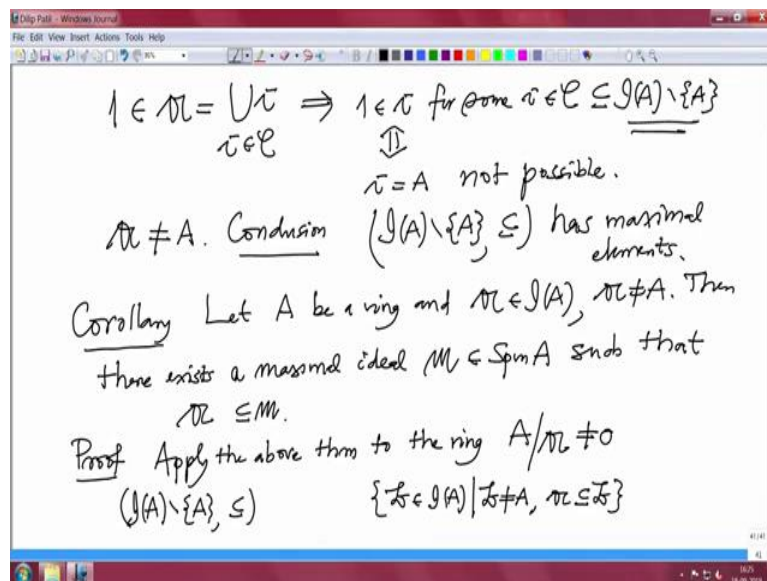 Dilip Patil - Windows Journal
File Edit View Insert Actions Tools Help
1 ∈ 𝔞 = ⋃ 𝔠 ⇒ 1 ∈ 𝔠 for some 𝔠 ∈ 𝒞 ⊆ 𝓘(A)∖{A}
𝔠∈𝒞 ⇕
𝔠 = A not possible.
𝔞 ≠ A. Conclusion (𝓘(A)∖{A}, ⊆) has maximal
elements.
Corollary Let A be a ring and 𝔞 ∈ 𝓘(A), 𝔞 ≠ A. Then
there exists a maximal ideal 𝔪 ∈ Spm A such that
𝔞 ⊆ 𝔪.
Proof Apply the above thm to the ring A/𝔞 ≠ 0
(𝓘(A)∖{A}, ⊆) {𝔟 ∈ 𝓘(A) | 𝔟 ≠ A, 𝔞 ⊆ 𝔟}
41/41
41